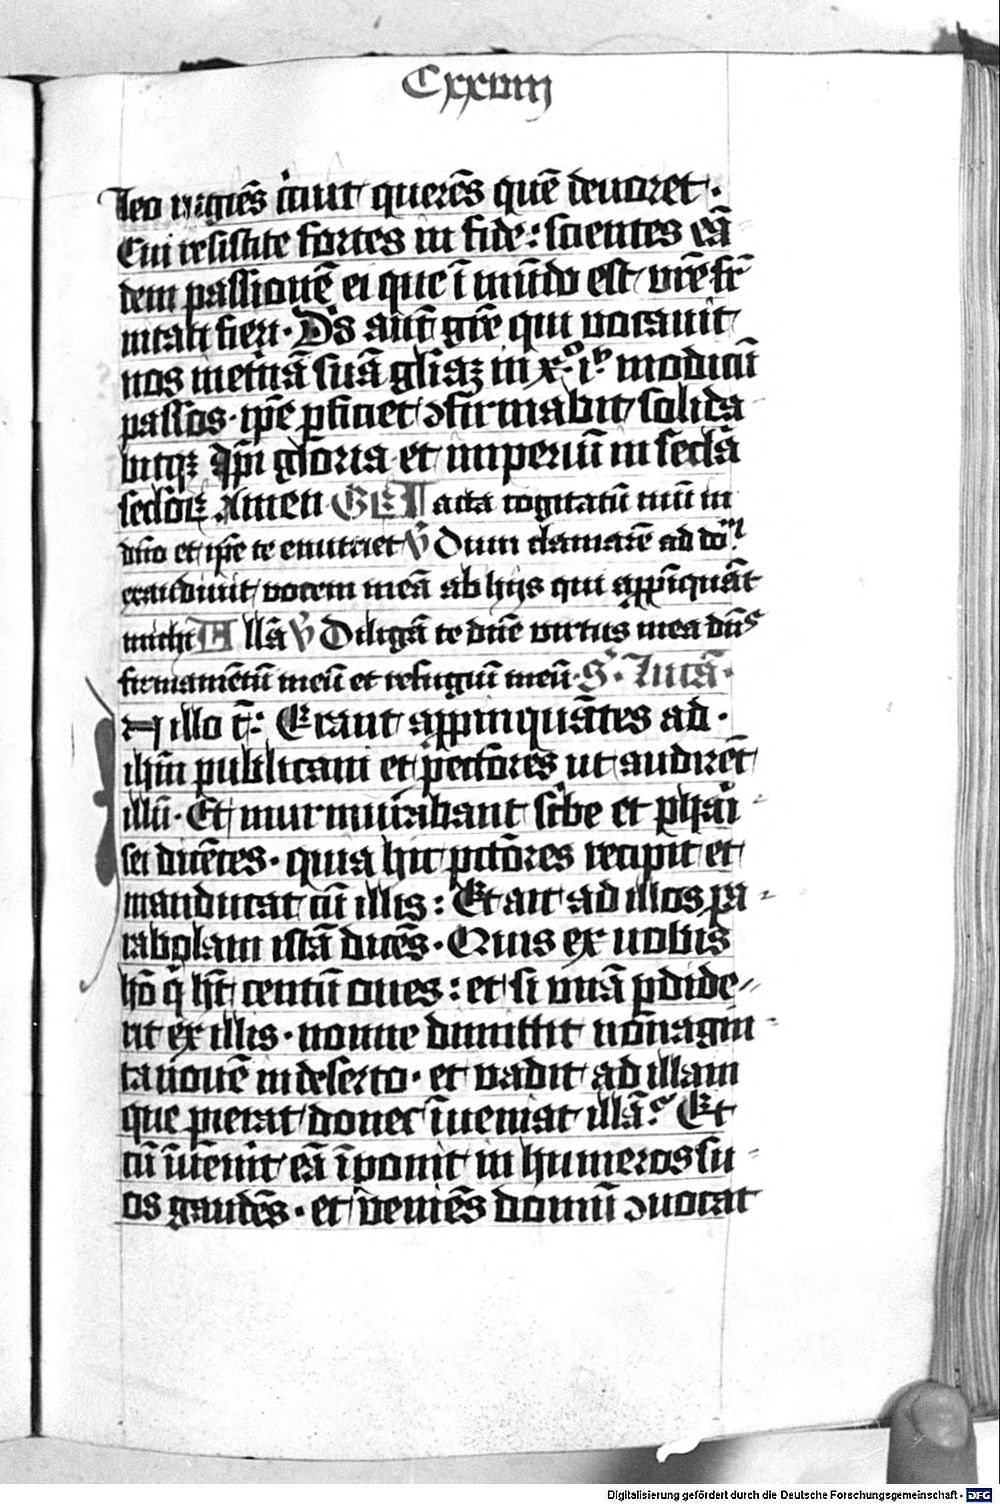 Cxxviij
leo rugiēs ċuit querēs quē deuoret·
Cui resistite fortes in fide: scientes eā
dem passionē ei que ī mūdo est vr̄e fr̄
nitati fieri· D̄s aut̄ gr̄e qui vocauit
nos in et̄nā suā gl̄iaꝫ in xͦ iͧ modicū
passos· ip̄e ꝑficiet ꝯfirmabit solida
bitqꝫ ip̄i gloria et imperiū in secl̄a
secl̄oꝝ Amen Gr̄ Iacta cogitatū tuū in
dn̄o et ip̄e te enutriet ℣ Dum clamarē ad dom̄
exaudiuit vocem meā ab hijs qui appīquāt
michi Allā ℣ Diligā te dn̄e virtus mea dn̄s
firmamētū meū et refugiū meū· S· lucā·
N illo t̄: Erant appinquātes ad·
ih̄m publicani et peccōres ut audirēt
illū· Et murmurabant sc̄be et phāi
sei dicētes· quia hic pctōres recipit et
manducat cū illis: Et ait ad illos pa
rabolam istā dicēs· Quis ex uobis
hō q̄ h̄t centū oues: et si unā ꝑdide
rit ex illis· nonne dimittit nōnagin
ta nouē in deserto· et vadit ad illam
que ꝑierat donec īueniat illā: Et
cū īuēnit eā īponit in humeros su
os gaudēs· et veniēs domū ꝯuocat
Digitalisierung gefördert durch die Deutsche Forschungsgemeinschaft - DFG